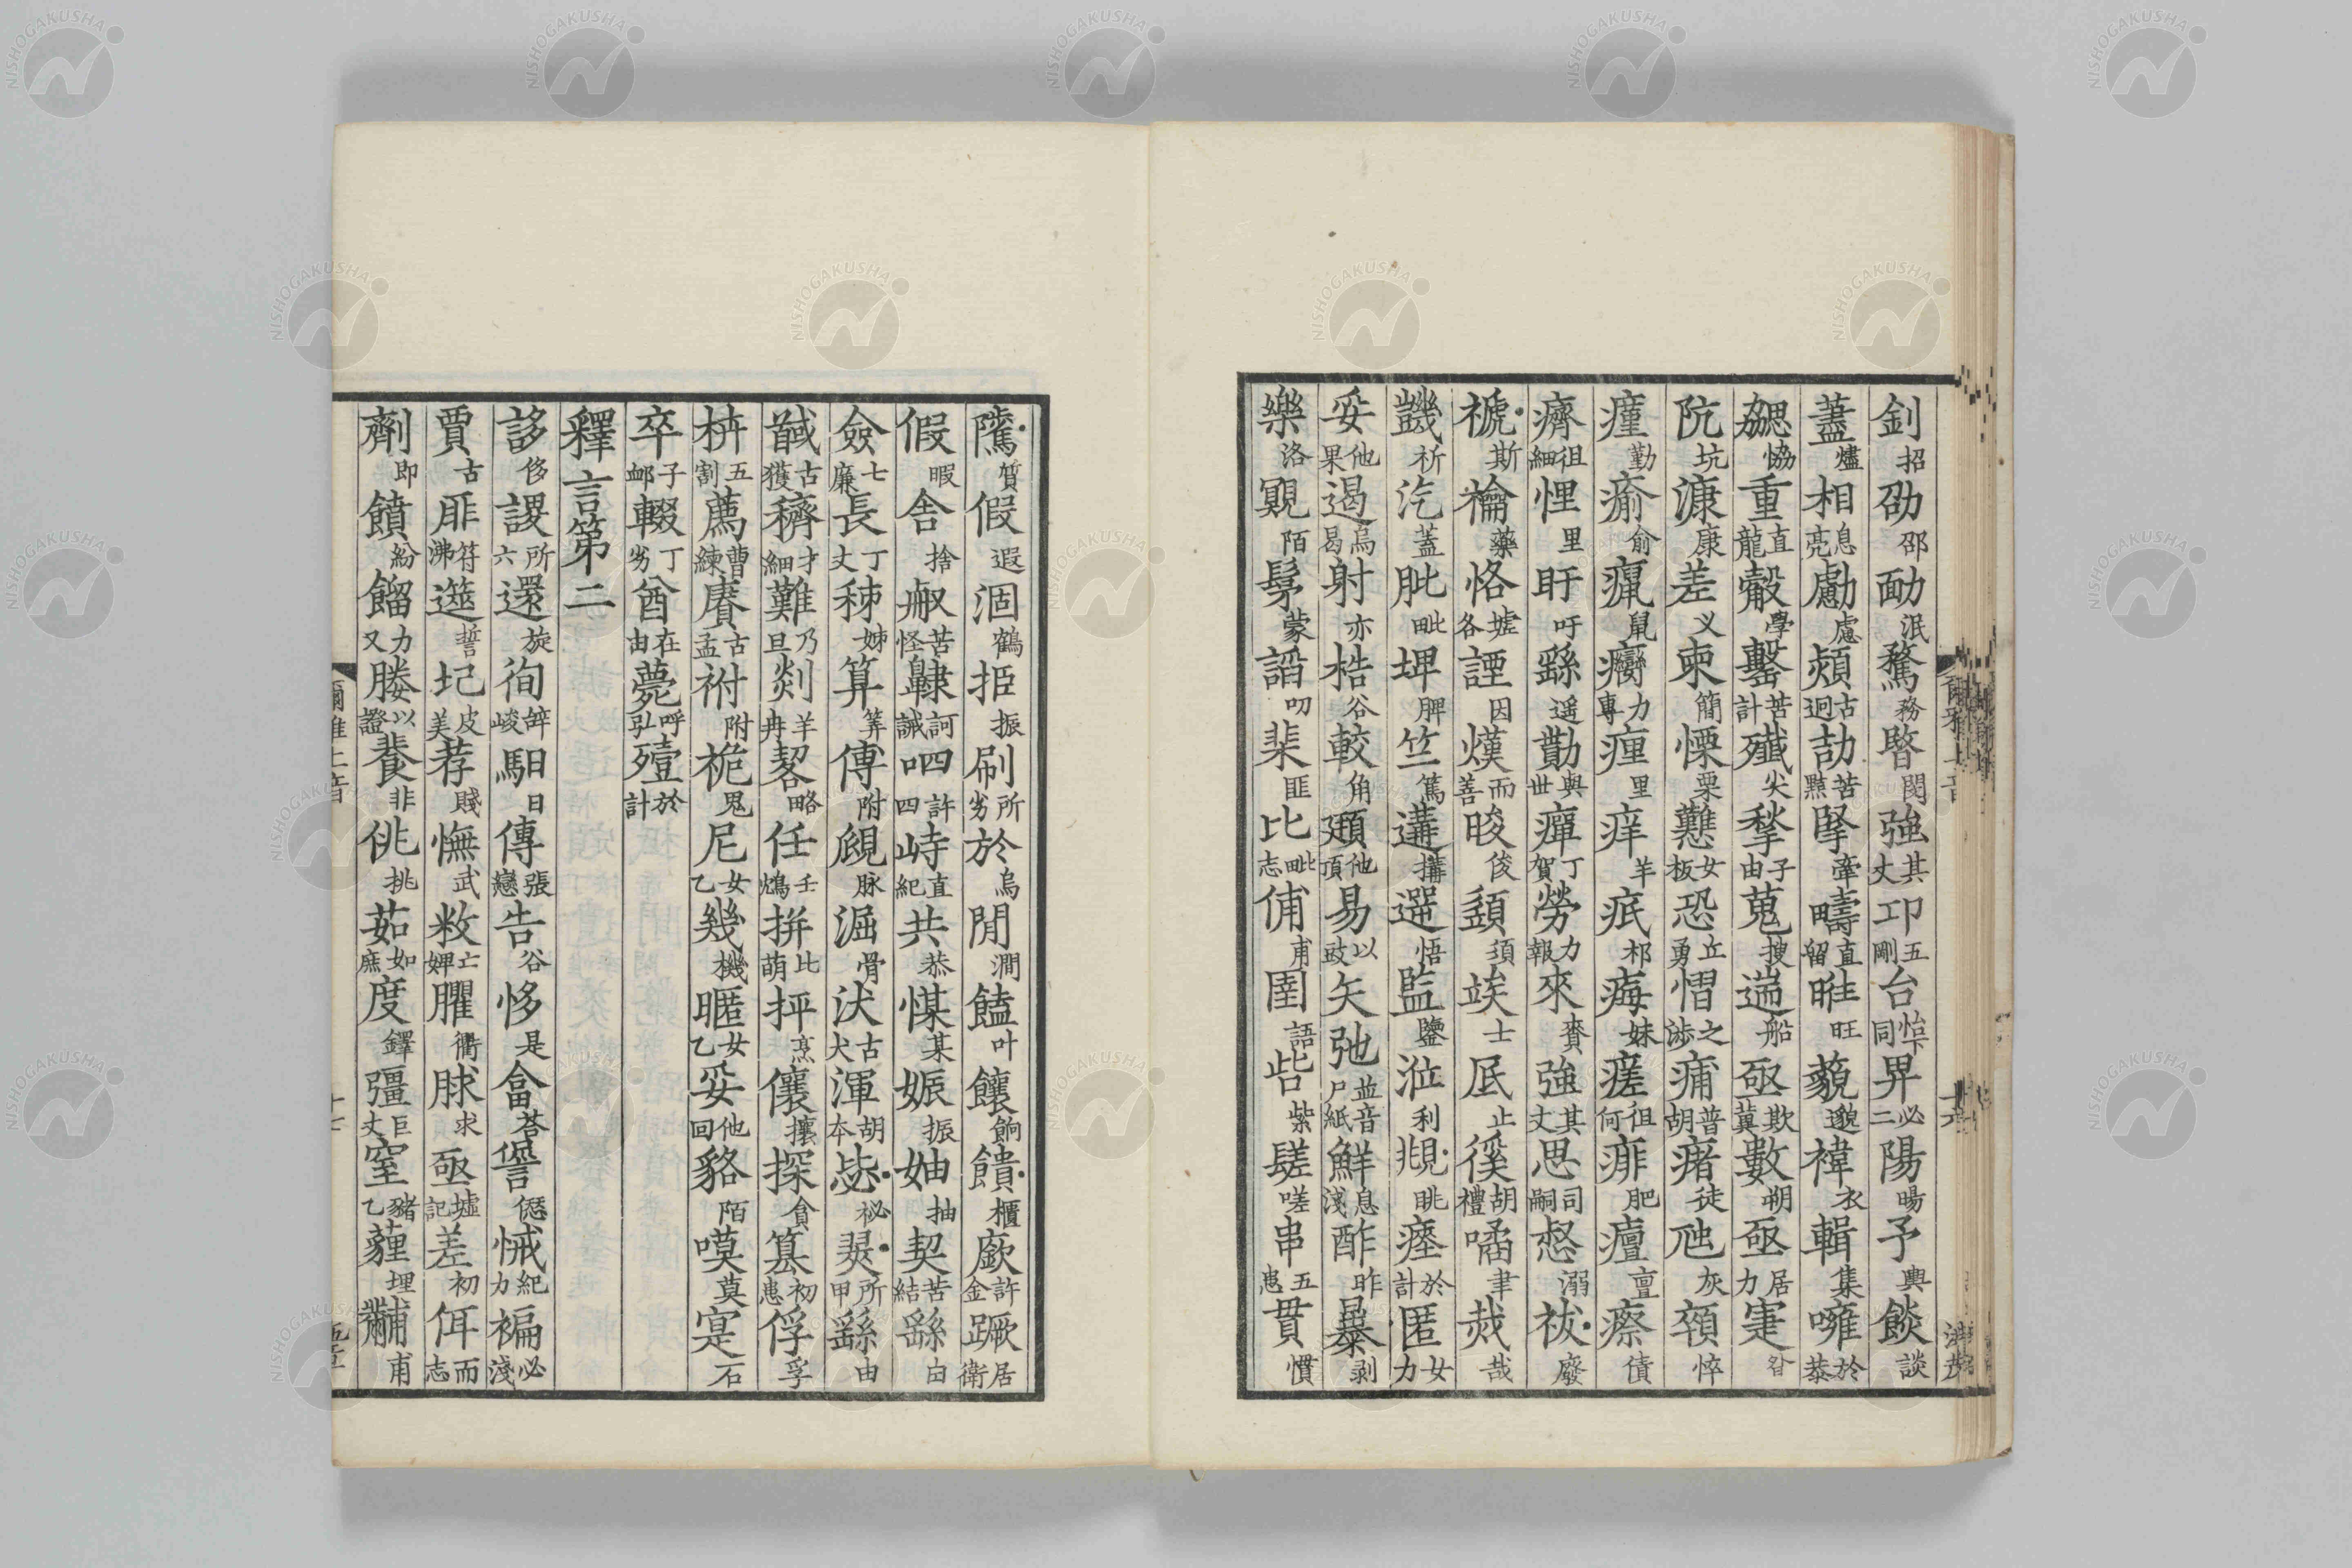 釗招劭邵勔泯騖務暋閔強其丈卭五剛台怡下同畀必二陽暘予與餤談
藎燼相息亮勴慮熲古迥劼苦黠掔牽疇直留暀旺藐邈褘衣輯集噰於恭
勰協重直龍㲉學罊苦計殲尖揫子由蒐搜遄船亟欺冀數朔亟居力寁昝
阬坑漮康差义柬簡慄栗戁女板恐丘勇慴之涉痡普胡瘏徒虺灰顇悴
瘽勤瘉俞癙鼠癵力專瘇里痒羊疧祁痗妹瘥徂何痱肥癉亶瘵債
癠徂細悝里盱吁繇遥勩與世癉丁賀勞力報來賚強其丈思司嗣惄溺祓廢
禠斯禴藥恪墟各諲因熯而善晙俊頿須竢士厎止徯胡禮噊聿烖哉
鐖祈汔蓋肶毗埤脾竺篤遘搆遻悟監鑒涖利覜眺瘞於計匿女力
妥他果遏烏曷射亦梏谷較角頲他頂易以豉矢弛並音尸紙鮮息淺酢昨暴剥
樂洛覭陌髳蒙謟叨棐匪比毗志俌甫圉語呰紫髊嗟串五患貫慣
爾雅上音
十六
隲質假遐涸鶴挋振刷所劣於烏閒澗饁叶饟餉饋櫃廞許金蹶居衛
假暇舍捨㕟苦怪齂訶誡呬許四峙直紀共恭惎某娠振妯抽契苦結繇由
僉七廉長丁丈秭姊算筭傅附覛脉淈骨汱古犬渾胡本毖祕翜所甲繇由
馘古獲穧才細難乃旦剡羊冉䂮略任壬鴆拼比萌抨烹儴攘探貪篡初患俘孚
枿五割薦曹練賡古孟祔附祪鬼尼女乙幾機暱女乙妥他回貉陌嗼莫寔石
卒子卹輟丁劣酋在由薨呼弘殪於計
釋言第二
誃侈謖所六還旋徇辝峻馹日傳張戀告谷恀是畣荅諐愆悈紀力褊必淺
賈古厞符沸遾誓圮皮美荐賤憮武敉亡婢臞衢脙求亟墟記差初佴而志
劑即饙紛餾力又媵以證餥非佻挑茹如庶度鐸彊巨丈窒豬乙薶埋黼甫
爾雅上音
十七